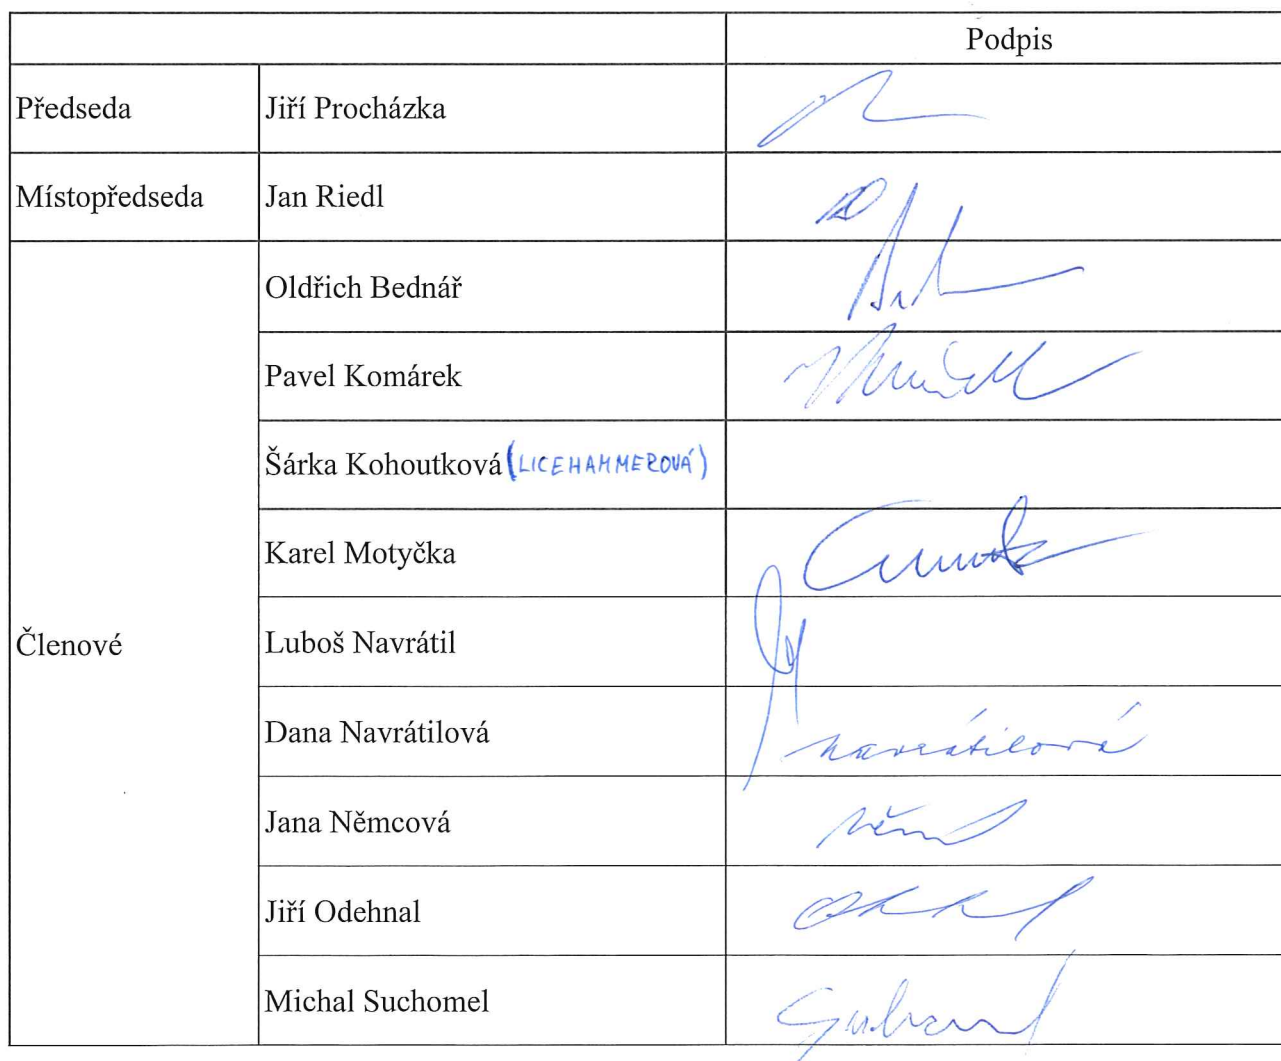 Podpis
Předseda Jiří Procházka
Místopředseda Jan Riedl
Oldřich Bednář
Pavel Komárek
Šárka Kohoutková (LICEHAMMEROVÁ)
Karel Motyčka
Členové Luboš Navrátil
Dana Navrátilová Navrátilová
Jana Němcová
Jiří Odehnal
Michal Suchomel